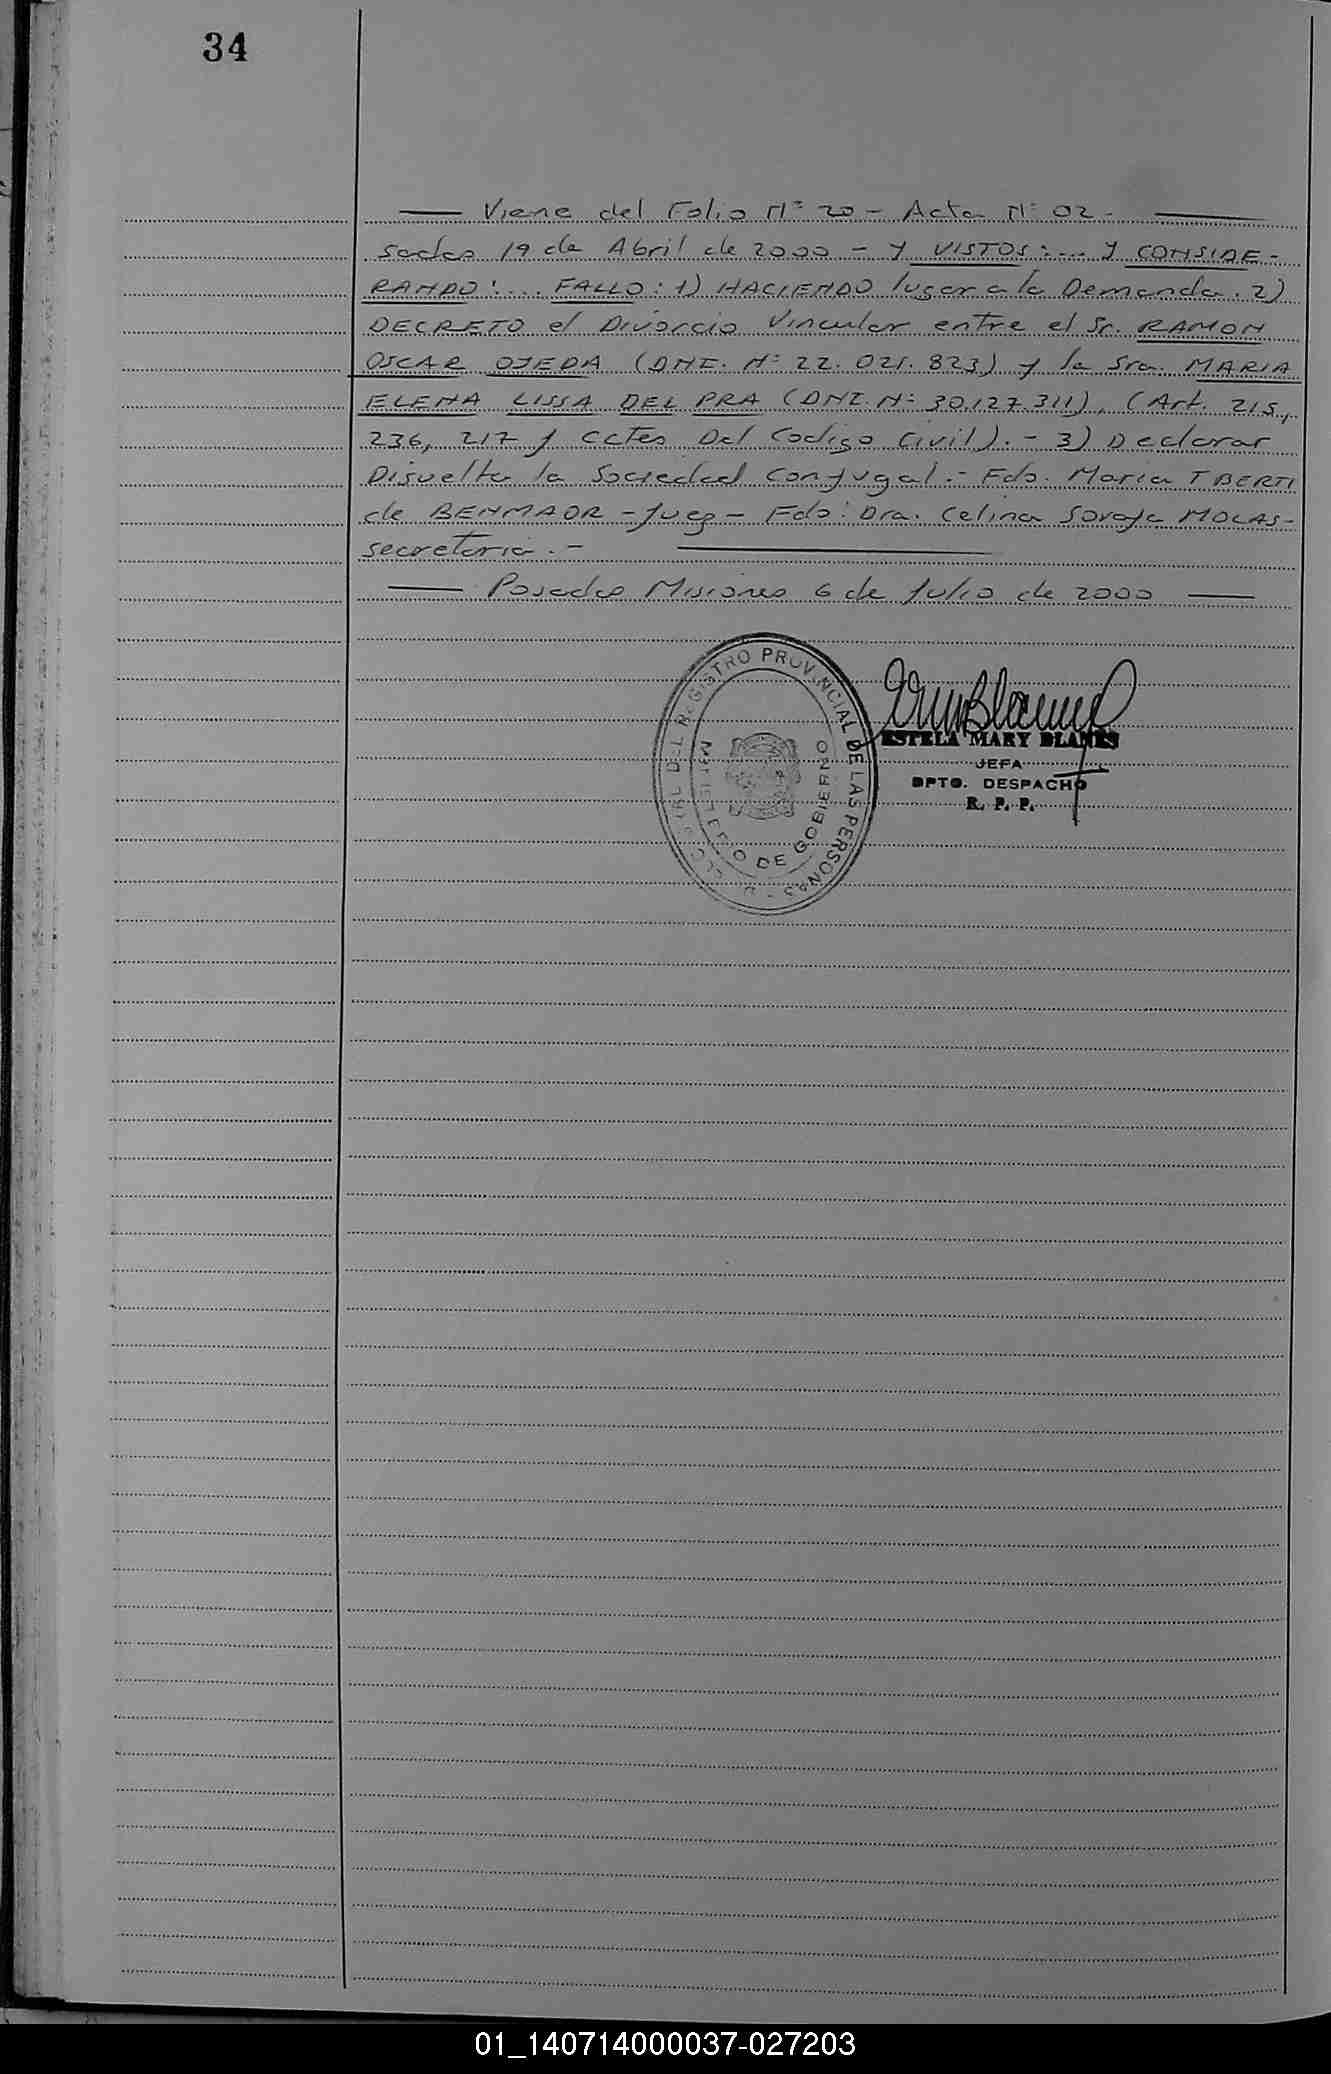 34
Viene del Folio N° 20 - Acta N° 02 -
sadas 19 de Abril de 2000 - Y VISTOS: ... Y CONSIDE-
RANDO: ... FALLO: 1) HACIENDO lugar a la Demanda. 2)
DECRETO el Divorcio Vincular entre el Sr. RAMON
OSCAR OJEDA (DNI. N° 22.021.823) y la Sra. MARIA
ELENA LISSA DEL PRA (DNI N° 30.127.311), (Art. 215,
236, 217 y cctes Del Codigo Civil). - 3) Declarar
Disuelta la Sociedad Conyugal. - Fdo. Maria T BERTI
de BENMAOR - Juez - Fdo: Dra. Celina Soraya MOLAS -
secretaria. -
Posadas Misiones 6 de Julio de 2000
DEL REGISTRO PROVINCIAL DE LAS PERSONAS
MINISTERIO DE GOBIERNO
ESTELA MARY BLANES
JEFA
DPTO. DESPACHO
R. P. P.
01_140714000037-027203